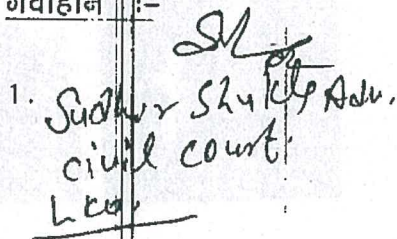 गवाहान :-
1. Sudhir Shukla Adv.
civil court.
Lko.